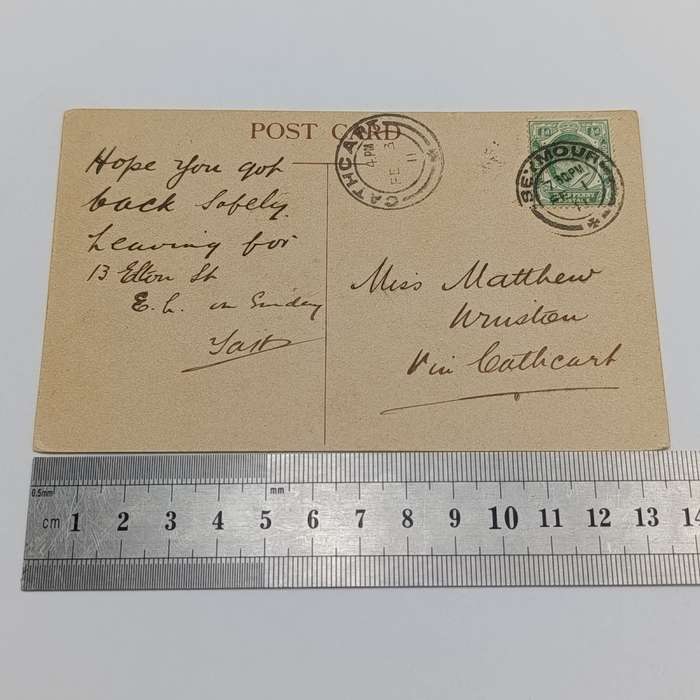 POST CARD
CATHCART
4 PM
FE 3
11
SEYMOUR
7 30 PM
FE 1
Hope you got
back safely.
Leaving for
13 Elton St
E. L. on Sunday
Miss Matthew
Winston
Via Cathcart
0.5mm
mm
cm 1 2 3 4 5 6 7 8 9 10 11 12 13 14